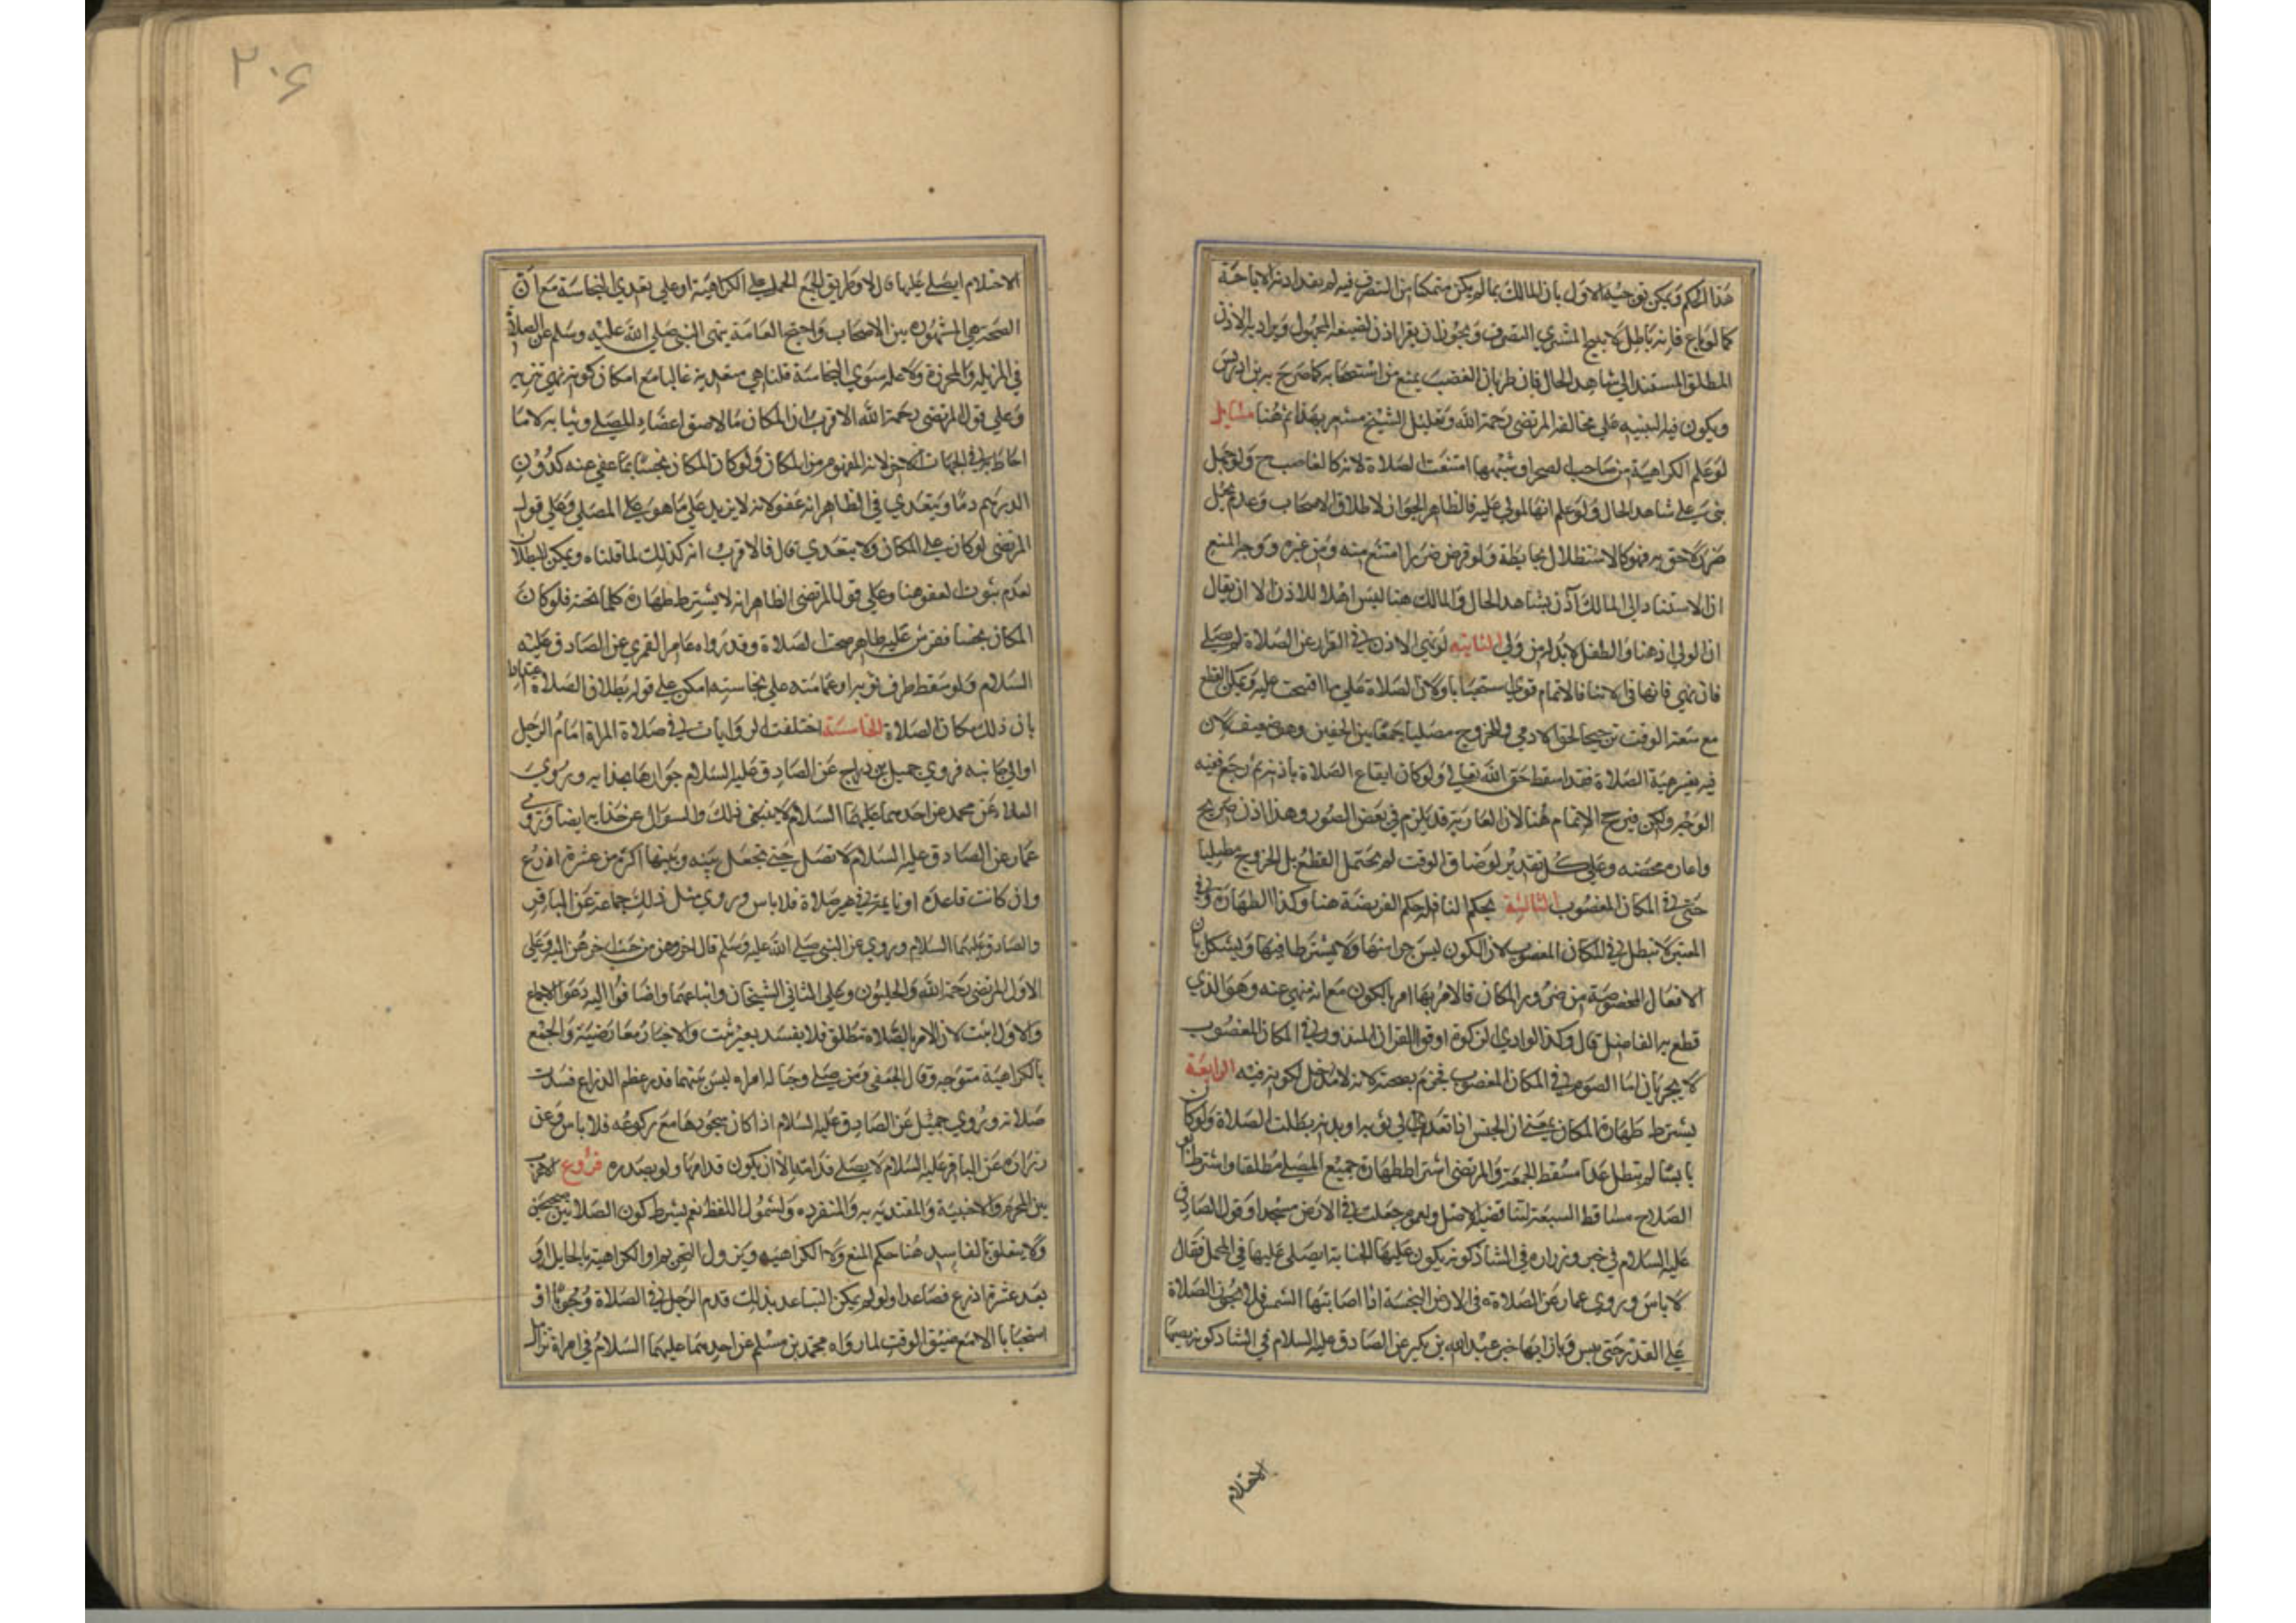 هذا الحكم ويمكن توجيه الاول بان المالك بما لم يكن متمكنا من التصرف فيه لم يفد اذنه الاباحة
كما لو باع فانه باطل لا يبيح المشتري التصرف ويجوز ان يقرا اذن لصيغة المجهول ويراد به الاذن
المطلق المستند الى شاهد الحال فان طريان الغصب يمنع من استصحابه كما صرح به بن ادريس
ويكون فيه التنبيه على مخالفة المرتضى رحمه الله وتعليل الشيخ مشعر بهذا ثم هنا مسايل
لو علم الكراهية من صاحب الصحرا وشبهها امتنعت الصلاة لانه كالغاصب ح ولو جهل
بني على شاهد الحال ولو علم انها لمولى عليه فالظاهر الجواز لاطلاق الاصحاب وعدم تخيل
ضرر لاحق به فهو كالاستظلال بحايطه ولو فرض ضررا امتنع منه ومن غيره ووجه المنع
ان الاستناد الى المالك آذن بشاهد الحال والمالك هنا ليس اهلا للاذن الا ان يقال
ان الولي اذن هنا والطفل لا بد له من ولي الثانية لو نهى الاذن في القرار عن الصلاة لم يصل
فان نهى في الاثنا فالاتمام قوي استصحابا ولان الصلاة على ما افتتحت عليه ويمكن القطع
مع سعة الوقت ترجيحا لحق الادمي والخروج مصليا جمعا بين الحقين وهو ضعيف لان
فيه تغير هية الصلاة فقد اسقط حق الله تعالى ولو كان ايقاع الصلاة باذنه ثم رجع ففيه
الوجه ولكن فيرجح الاتمام هنا لان العارية قد تلزم في بعض الصور وهذا اذن صريح
واعارة محضة وعلى كل تقدير لو ضاق الوقت لم يحتمل القطع بل الخروج مصليا
حتى في المكان المغصوب الثالثة حكم النافلة حكم الفريضة هنا وكذا الطهارة وفي
المعتبر لا تبطل في المكان المغصوب لان الكون ليس جزا منها ولا شرطا فيها ويشكل بان
الافعال المخصوصة من ضرورة المكان فالامر بها امر بالكون مع انه منهي عنه وهو الذي
قطع به الفاضل قال وكذا لو ادى الزكوة او قرا القران المنذور في المكان المغصوب
لا يجزيان اما الصوم في المكان المغصوب فجزم بصحته لانه لا مدخل لكونه فيه الرابعة
يشترط طهارة المكان بمعنى ان النجس اذا تعدى الى ثوبه او بدنه بطلت الصلاة ولو كان
يابسا لم تبطل عدا مسقط الجبهة والمرتضى اشترط طهارة جميع المصلى مطلقا واشترط ابو
الصلاح مساقط السبعة لنا قضية الاصل وعموم جعلت لي الارض مسجدا وقول الصادق
عليه السلام في خبر زرارة في الشاذكونة يكون عليها الجنابة ايصلى عليها في المحمل فقال
لا باس وروى عمار عن الصلاة في الارض النجسة اذا اصابتها الشمس فلا تجوز الصلاة
على القذر حتى ييبس وبازائها خبر عبد الله بن بكير عن الصادق عليه السلام في الشاذكونة يصيبها
الاحتلام
٢٠٤
الاحتلام ايصلى عليها قال لا وطريق الجمع الحمل على الكراهية او على تعدي النجاسة مع ان
الصحة هي المشهورة بين الاصحاب واحتج العامة بنهي النبي صلى الله عليه وسلم عن الصلاة
في المزبلة والمجزرة ولا علة سوى النجاسة قلنا هي متعدية غالبا مع امكان كونه نهي تنزيه
وعلى قول المرتضى رحمه الله الاقرب ان المكان ما لاصق اعضاء المصلي وثيابه لا ما
احاط به في الجهات الاخر لانه المفهوم من المكان ولو كان المكان نجسا بما عفي عنه كدون
الدرهم دما ويتعدى فالظاهر انه عفو لانه لا يزيد على ما هو على المصلي وعلى قول
المرتضى لو كان على المكان ولا يتعدى قال فالاقرب انه كذلك لما قلناه ويمكن البطلان
لعدم ثبوت العفو هنا وعلى قول المرتضى الظاهر انه لا يشترط طهارة كلما تحته فلو كان
المكان نجسا ففرش عليه طاهر صحت الصلاة وقد رواه عامر القمي عن الصادق عليه
السلام ولو سقط طرف ثوبه او عمامته على نجاسته امكن على قوله بطلان الصلاة اعتبارا
بان ذلك مكان الصلاة الخامسة اختلفت الروايات في صلاة المراة امام الرجل
او الى جانبه فروى جميل بن دراج عن الصادق عليه السلام جوازها بحذايه وروى
العلا عن محمد عن احدهما عليهما السلام لا ينبغي ذلك والسوال عن حذايه ايضا وروى
عمار عن الصادق عليه السلام لا تصل حتى تجعل بينه وبينها اكثر من عشرة اذرع
وان كانت قاعدة او نايمة في غير صلاة فلا باس وروى مثل ذلك جماعة عن الباقر
والصادق عليهما السلام وروي عن النبي صلى الله عليه وسلم قال اخروهن من حيث اخرهن الله وعلى
الاول المرتضى رحمه الله والحليون وعلى الثاني الشيخان واتباعهما واضافوا اليه دعوى الاجماع
والاول اثبت لان الامر بالصلاة مطلق فلا يفسد بغير ثبت والاخبار معارضة والجمع
بالكراهية متوجه وقال الجعفي ومن صلى وحياله امراه ليس بينهما قدر عظم الذراع فسدت
صلاته وروى جميل عن الصادق عليه السلام اذا كان سجودها مع ركوعه فلا باس وعن
زرارة عن الباقر عليه السلام لا يصلي قدامه الا ان يكون قدامها ولو بصدره فروع لا فرق
بين المحرم والاجنبية والمقتدية به والمنفردة ولشمول اللفظ نعم يشترط كون الصلاتين صحيحتين
ولا يتعلق بالفاسدة هنا حكم المنع ولا الكراهية ويزول التحريم او الكراهية بالحايل او
بعد عشرة اذرع فصاعدا ولو لم يمكن التباعد بذلك قدم الرجل في الصلاة وجوبا او
استحبابا الا مع ضيق الوقت لما رواه محمد بن مسلم عن احدهما عليهما السلام في امراة تزامل